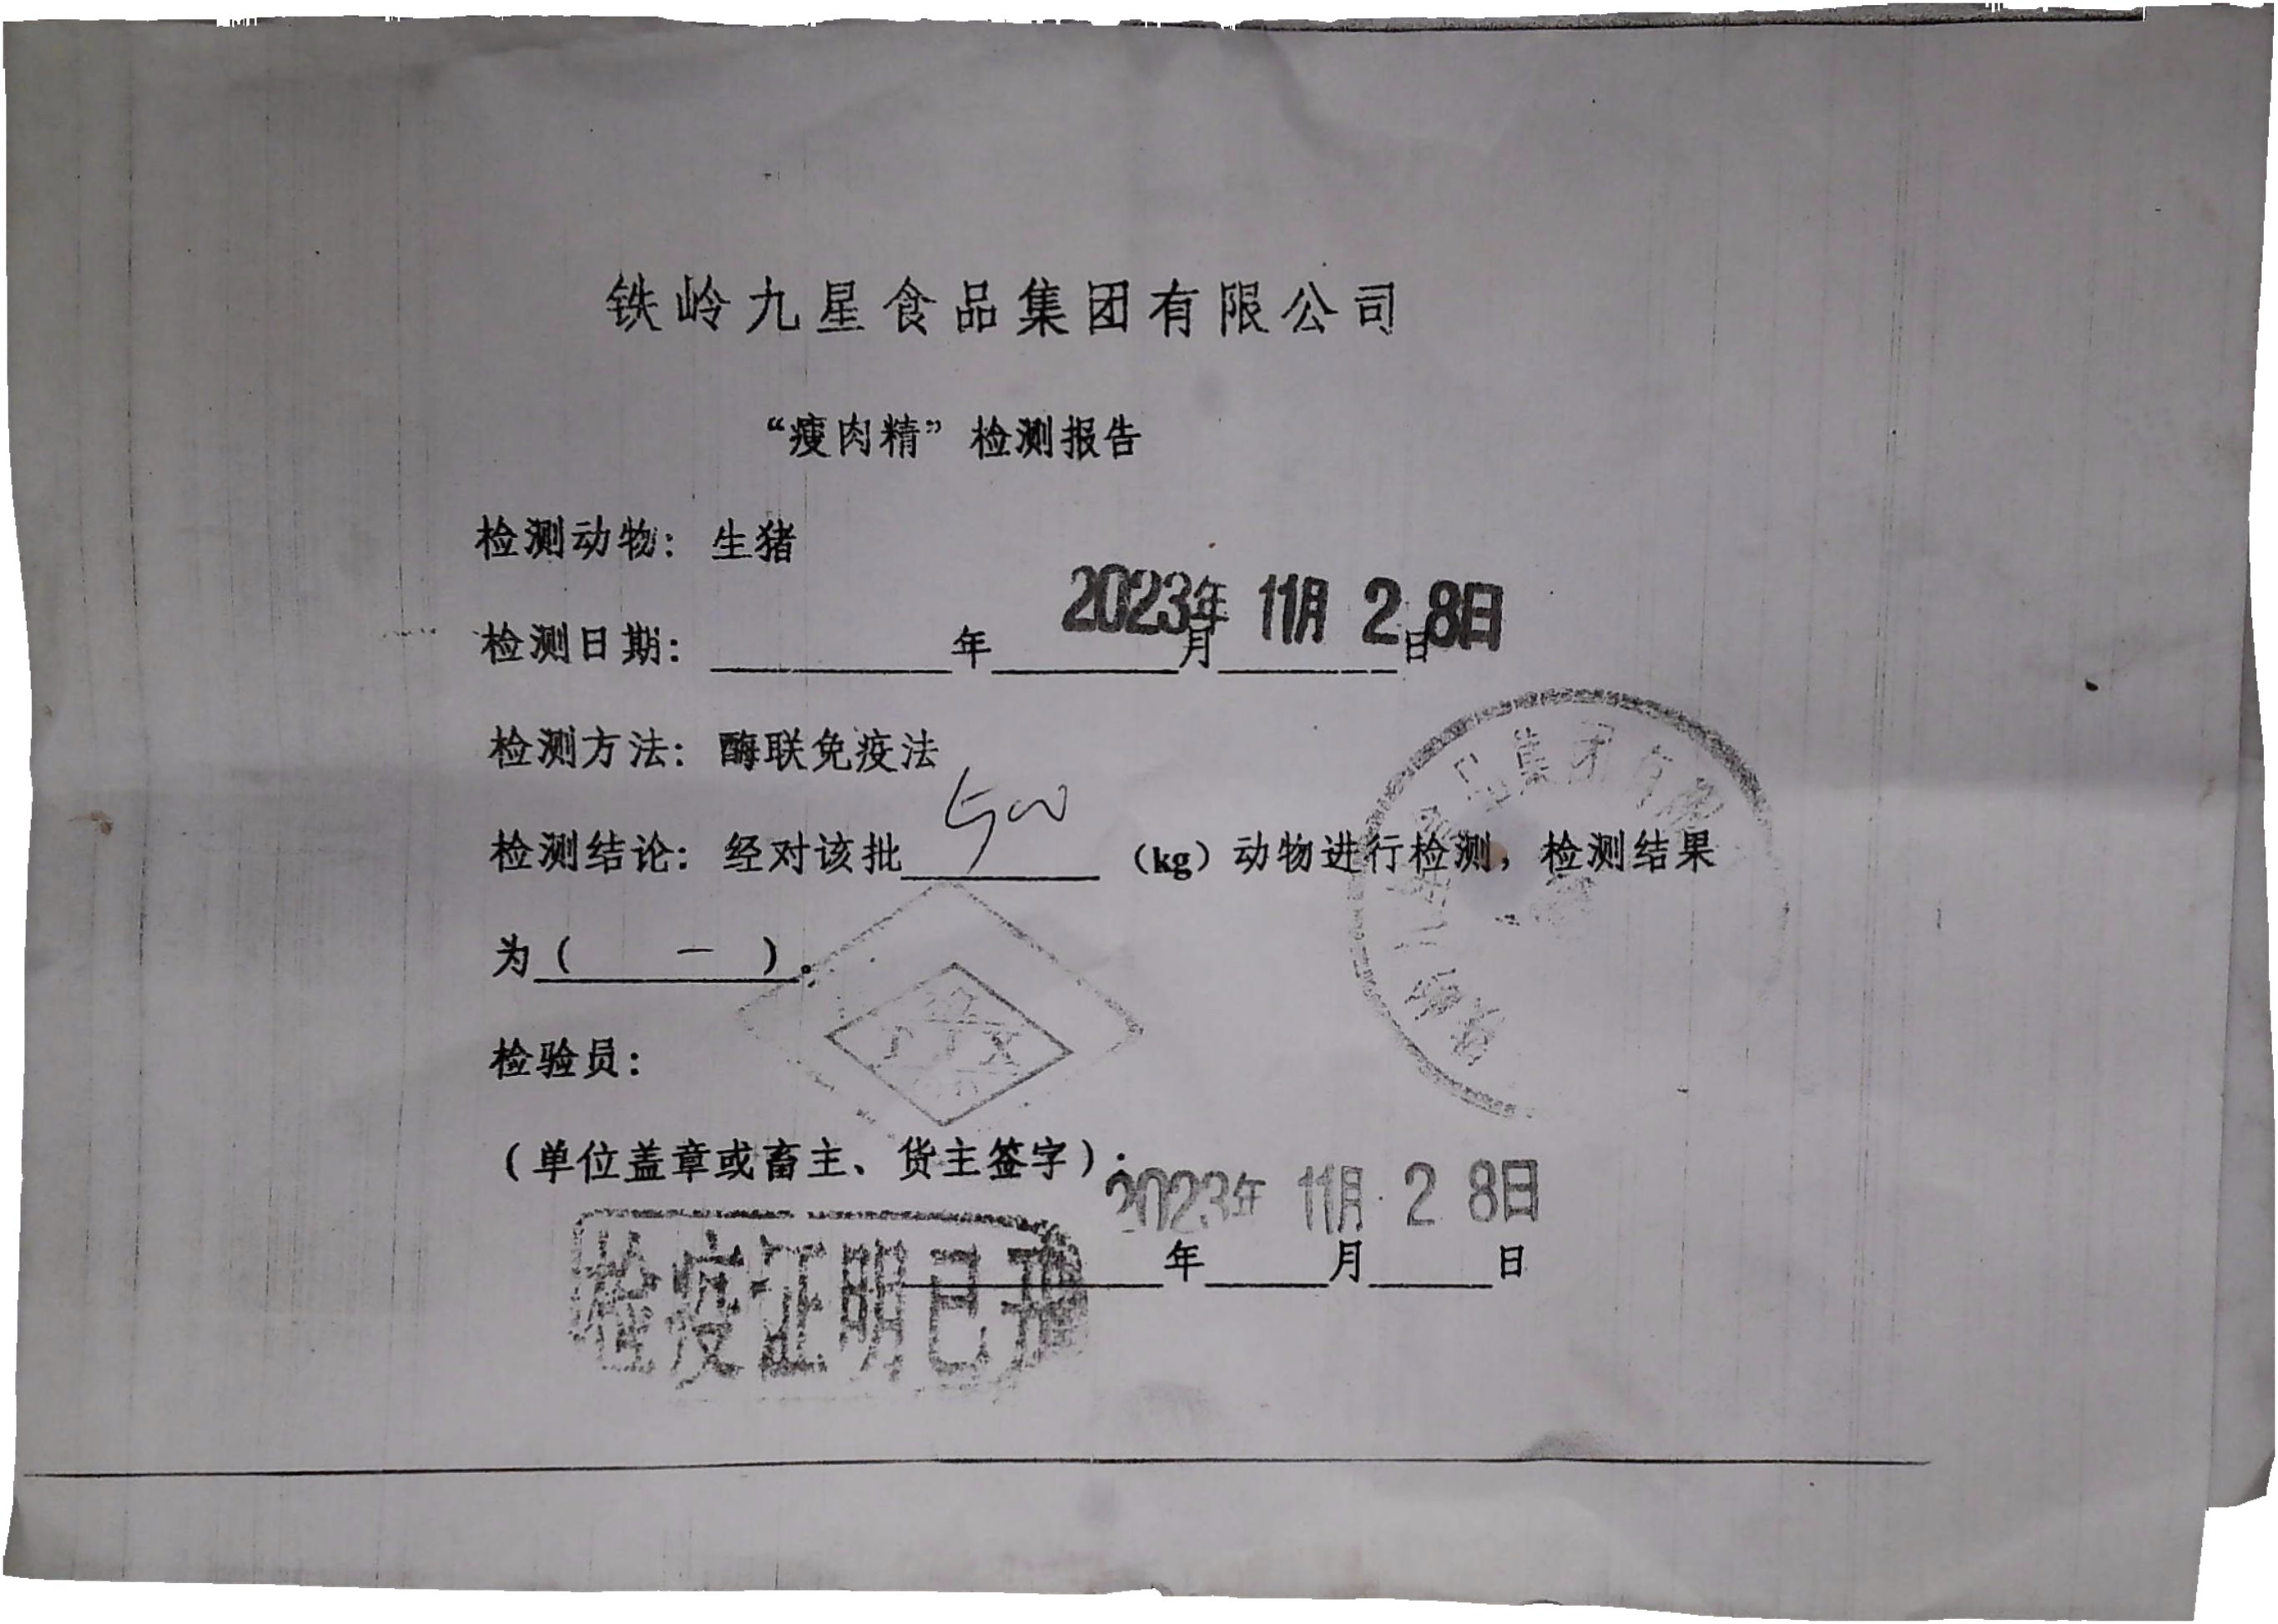 铁岭九星食品集团有限公司
“瘦肉精”检测报告
检测动物：生猪
2023年 11月 2 8日
检测日期：年月日
检测方法：酶联免疫法
检测结论：经对该批 500 （kg）动物进行检测，检测结果
为（ — ）。
品集团有限
检验员：
（单位盖章或畜主、货主签字）：
2023年 11月 2 8日
年月日
检疫证明已开